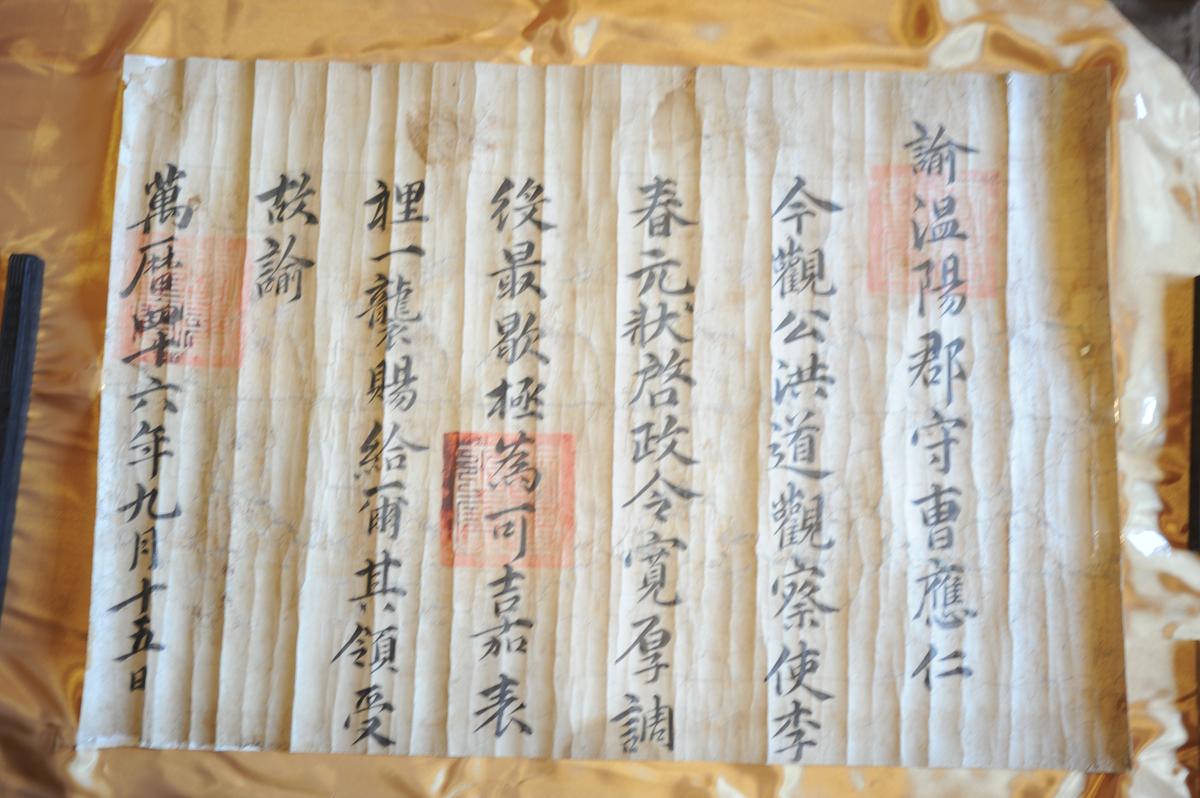 諭温陽郡守曺應仁
今觀公洪道觀察使李
春元狀啓政令寛厚調
役最歇極為可吉嘉表
裡一襲賜給爾其領受
故諭
萬曆四十六年九月十五日